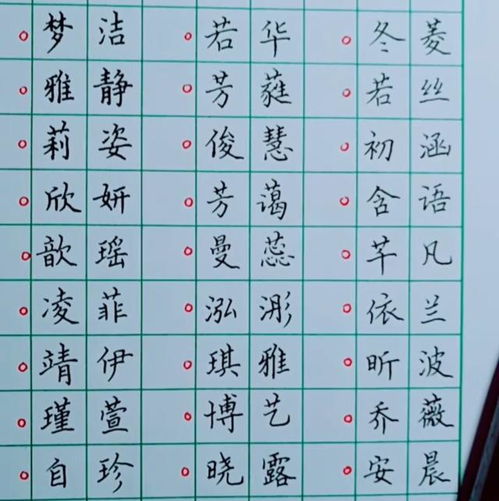 梦洁 若华 冬菱
雅静 芳蕤 若丝
莉姿 俊慧 初涵
欣妍 芳蔼 含语
歆瑶 曼蕊 芊凡
凌菲 泓浵 依兰
靖伊 琪雅 昕波
瑾萱 博艺 乔薇
自珍 晓露 安晨